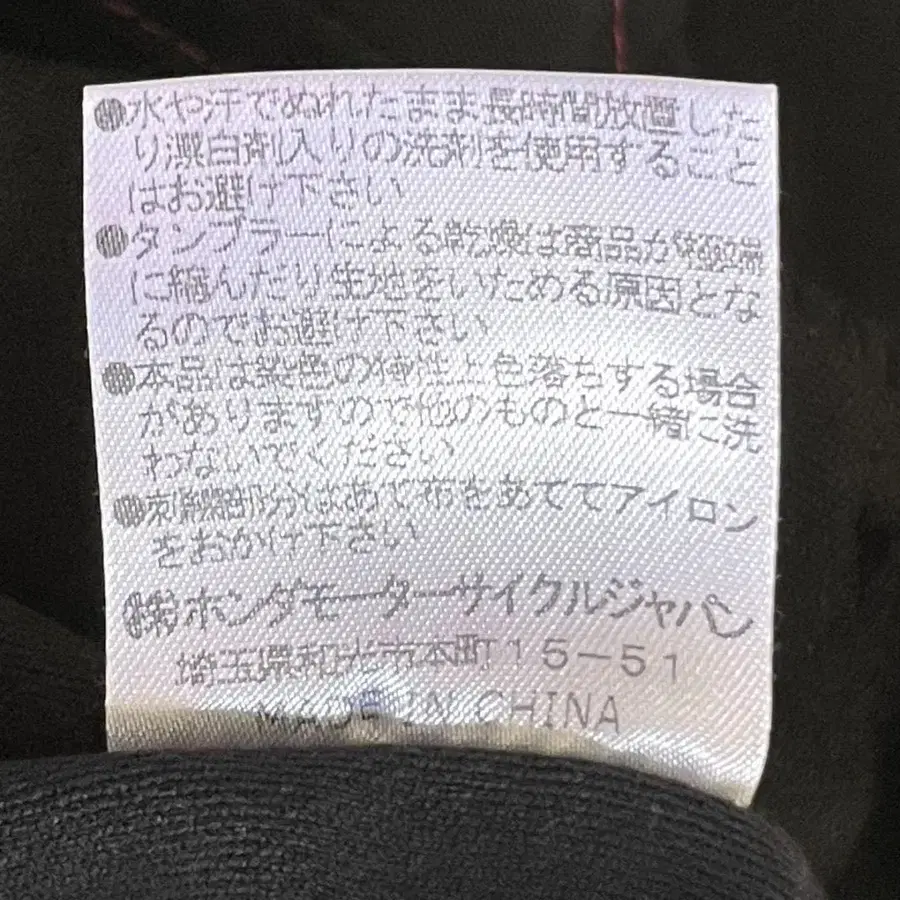 ●水や汗でぬれたまま長時間放置した
り漂白剤入りの洗剤を使用すること
はお避け下さい
●タンブラーによる乾燥は商品が極端
に縮んだり生地をいためる原因とな
るのでお避け下さい
●本品は染色の特性上色落ちする場合
がありますので他のものと一緒に洗
わないでください
●刺繍部分はあて布をあててアイロン
をおかけ下さい
㈱ホンダモーターサイクルジャパン
埼玉県和光市本町15-51
MADE IN CHINA